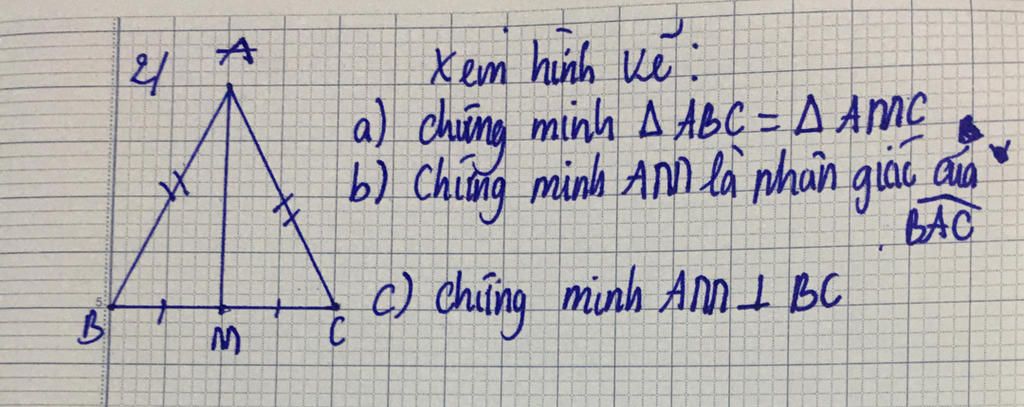 2/
A
Xem hình kế:
a) Chứng minh Δ ABC = Δ AMC
b) Chứng minh AM là phân giác của
BAC
c) Chứng minh AM ⊥ BC
B
M
C